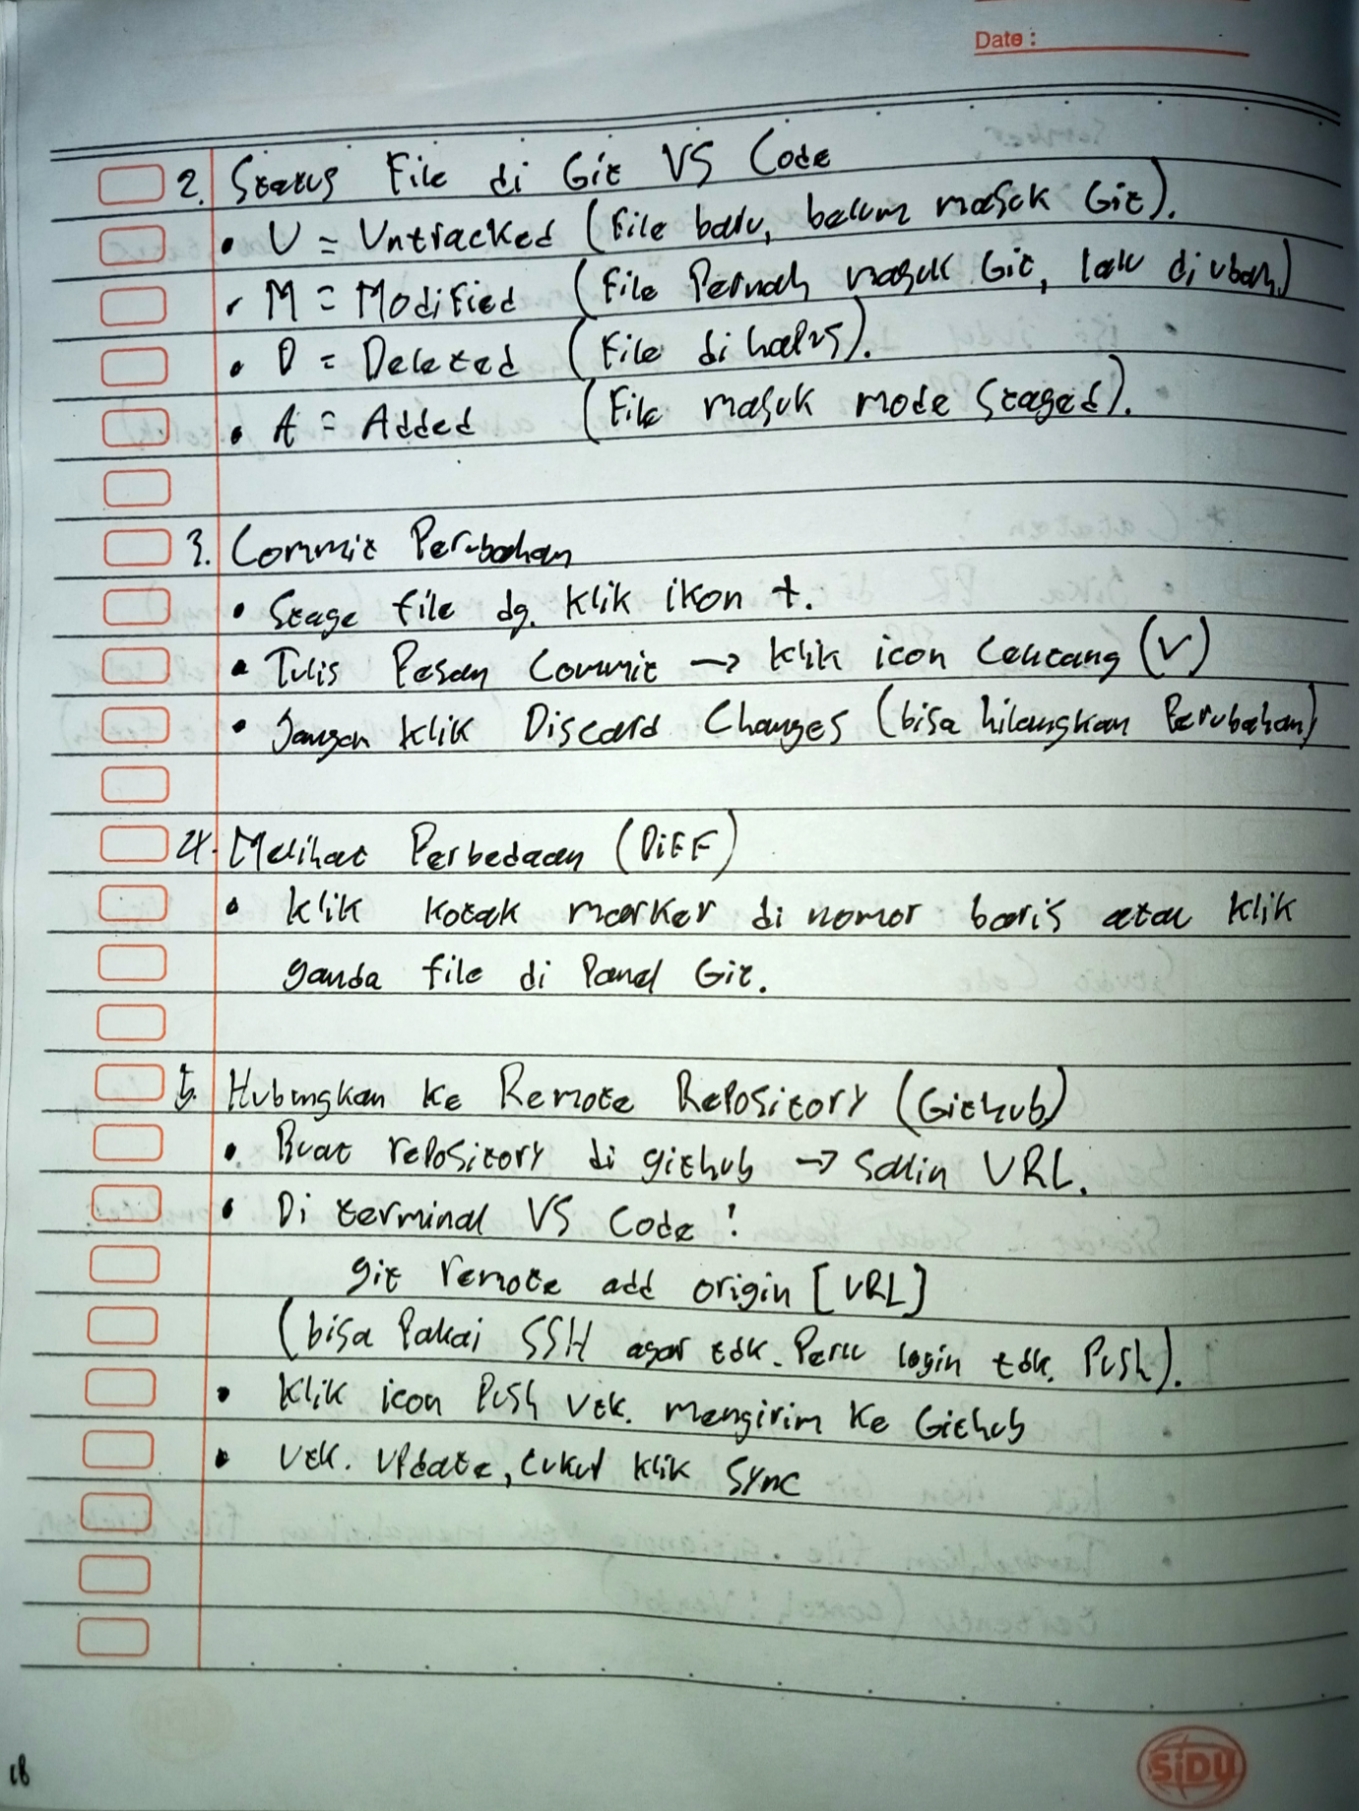 Date :
2. Status File di Git VS Code
• U = Untracked (File baru, belum masuk Git).
• M = Modified (File Pernah masuk Git, lalu diubah)
• D = Deleted (File dihapus).
• A = Added (File masuk mode Staged).
3. Commit Perubahan
• Stage file dg. klik ikon +.
• Tulis Pesan Commit → klik icon Centang (V)
• Jangan klik Discard Changes (bisa hilangkan Perubahan)
4. Melihat Perbedaan (DIFF)
• Klik kotak marker di nomor baris atau klik
ganda file di Panel Git.
5. Hubungkan ke Remote Repository (Github)
• Buat repository di github → Salin URL.
• Di terminal VS Code :
git remote add origin [URL]
(bisa Pakai SSH agar tdk. Perlu login tdk. Push).
• Klik icon Push utk. mengirim ke Github
• Utk. Update, cukup klik Sync
18
SiDU